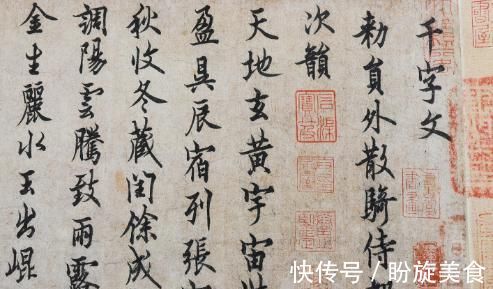 千字文
勑員外散騎侍
次韻
天地玄黃宇宙
盈昃辰宿列張
秋收冬藏閏餘成
調陽雲騰致雨露
金生麗水玉出崐
快传号 / 盼旋美食